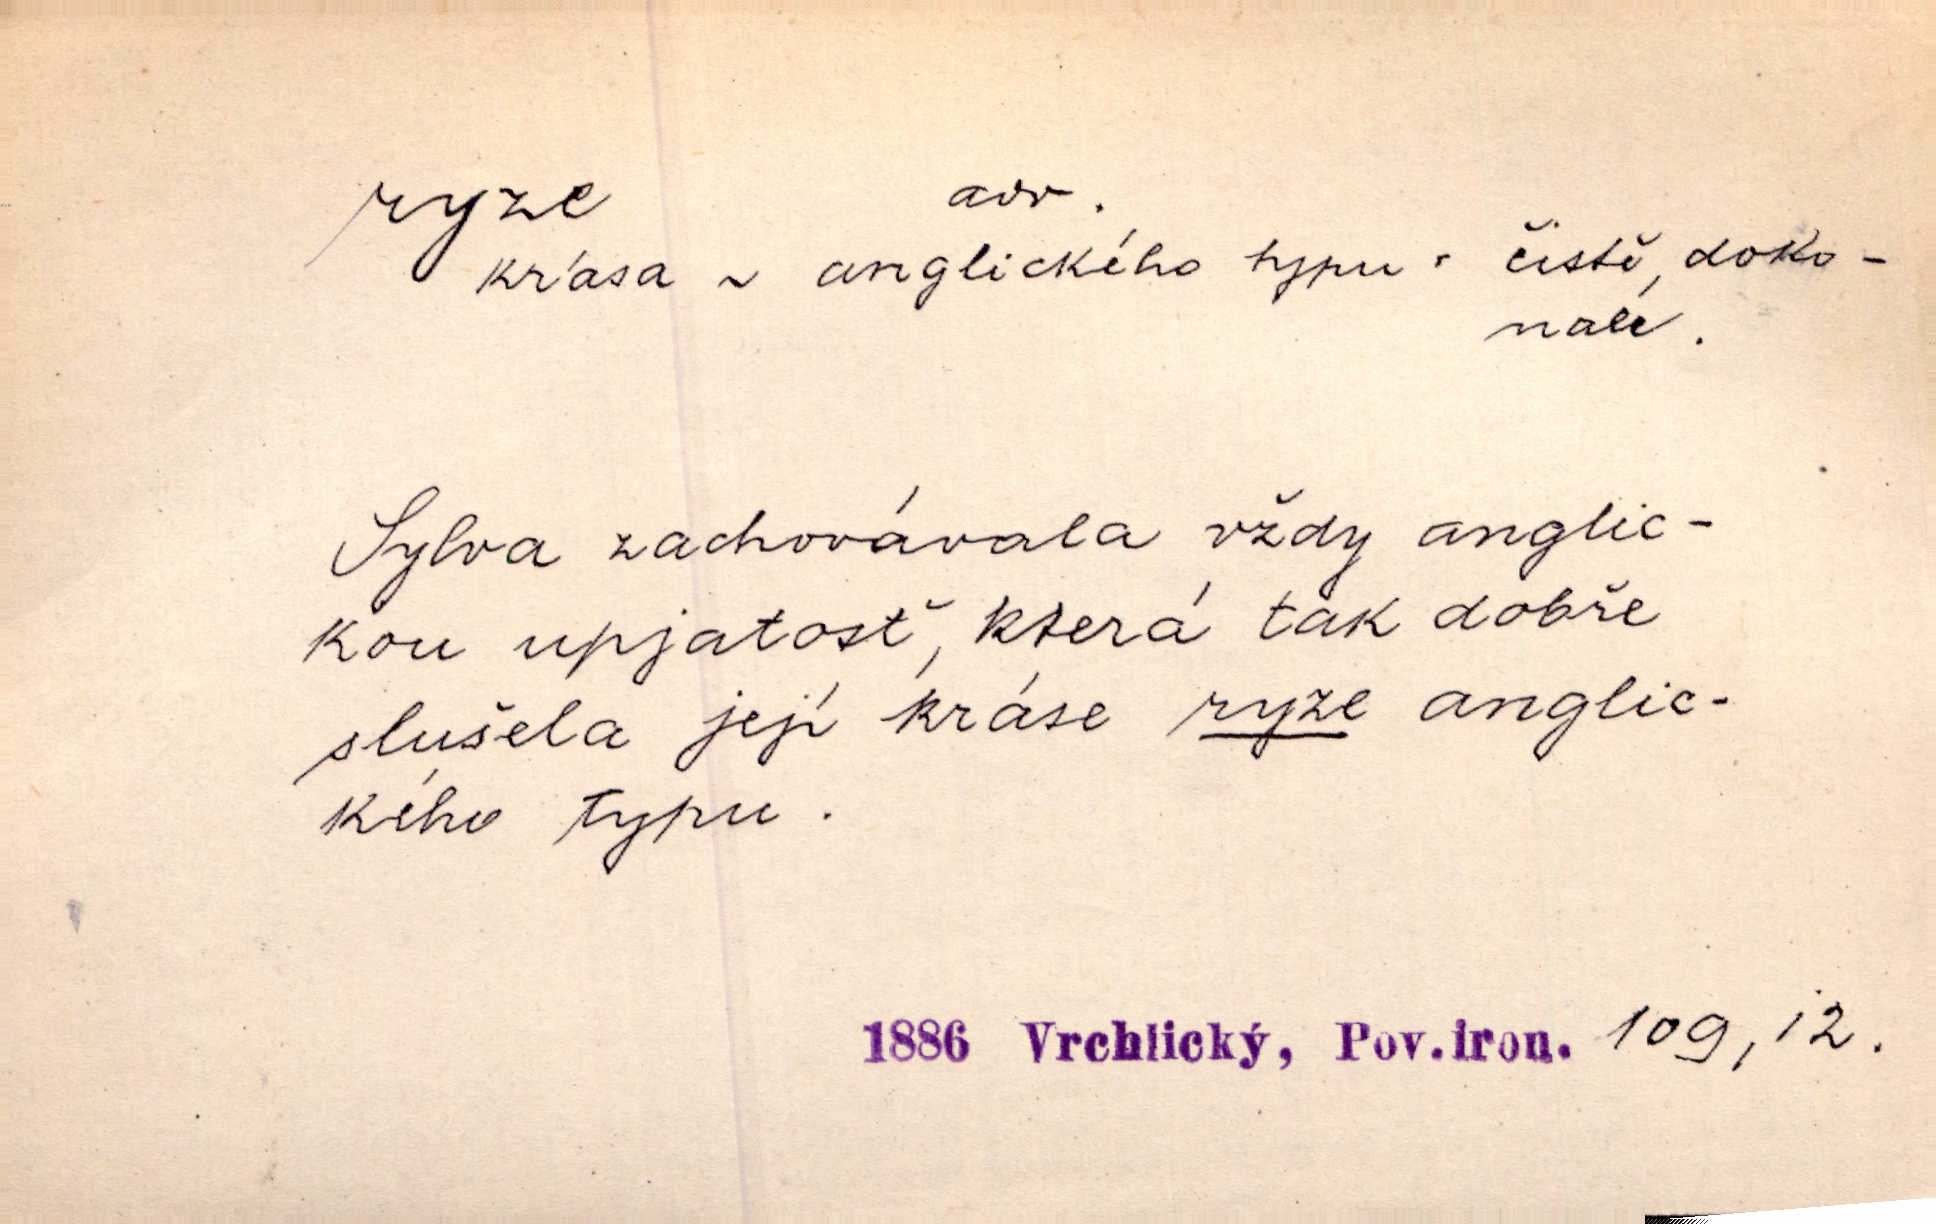 ryze adv.
krása ~ anglického typu : čistě, doko-
nale.
Sylva zachovávala vždy anglic-
kou upjatosť, která tak dobře
slušela její kráse ryze anglic-
kého typu.
1886 Vrchlický, Pov. iron. 109, 12.